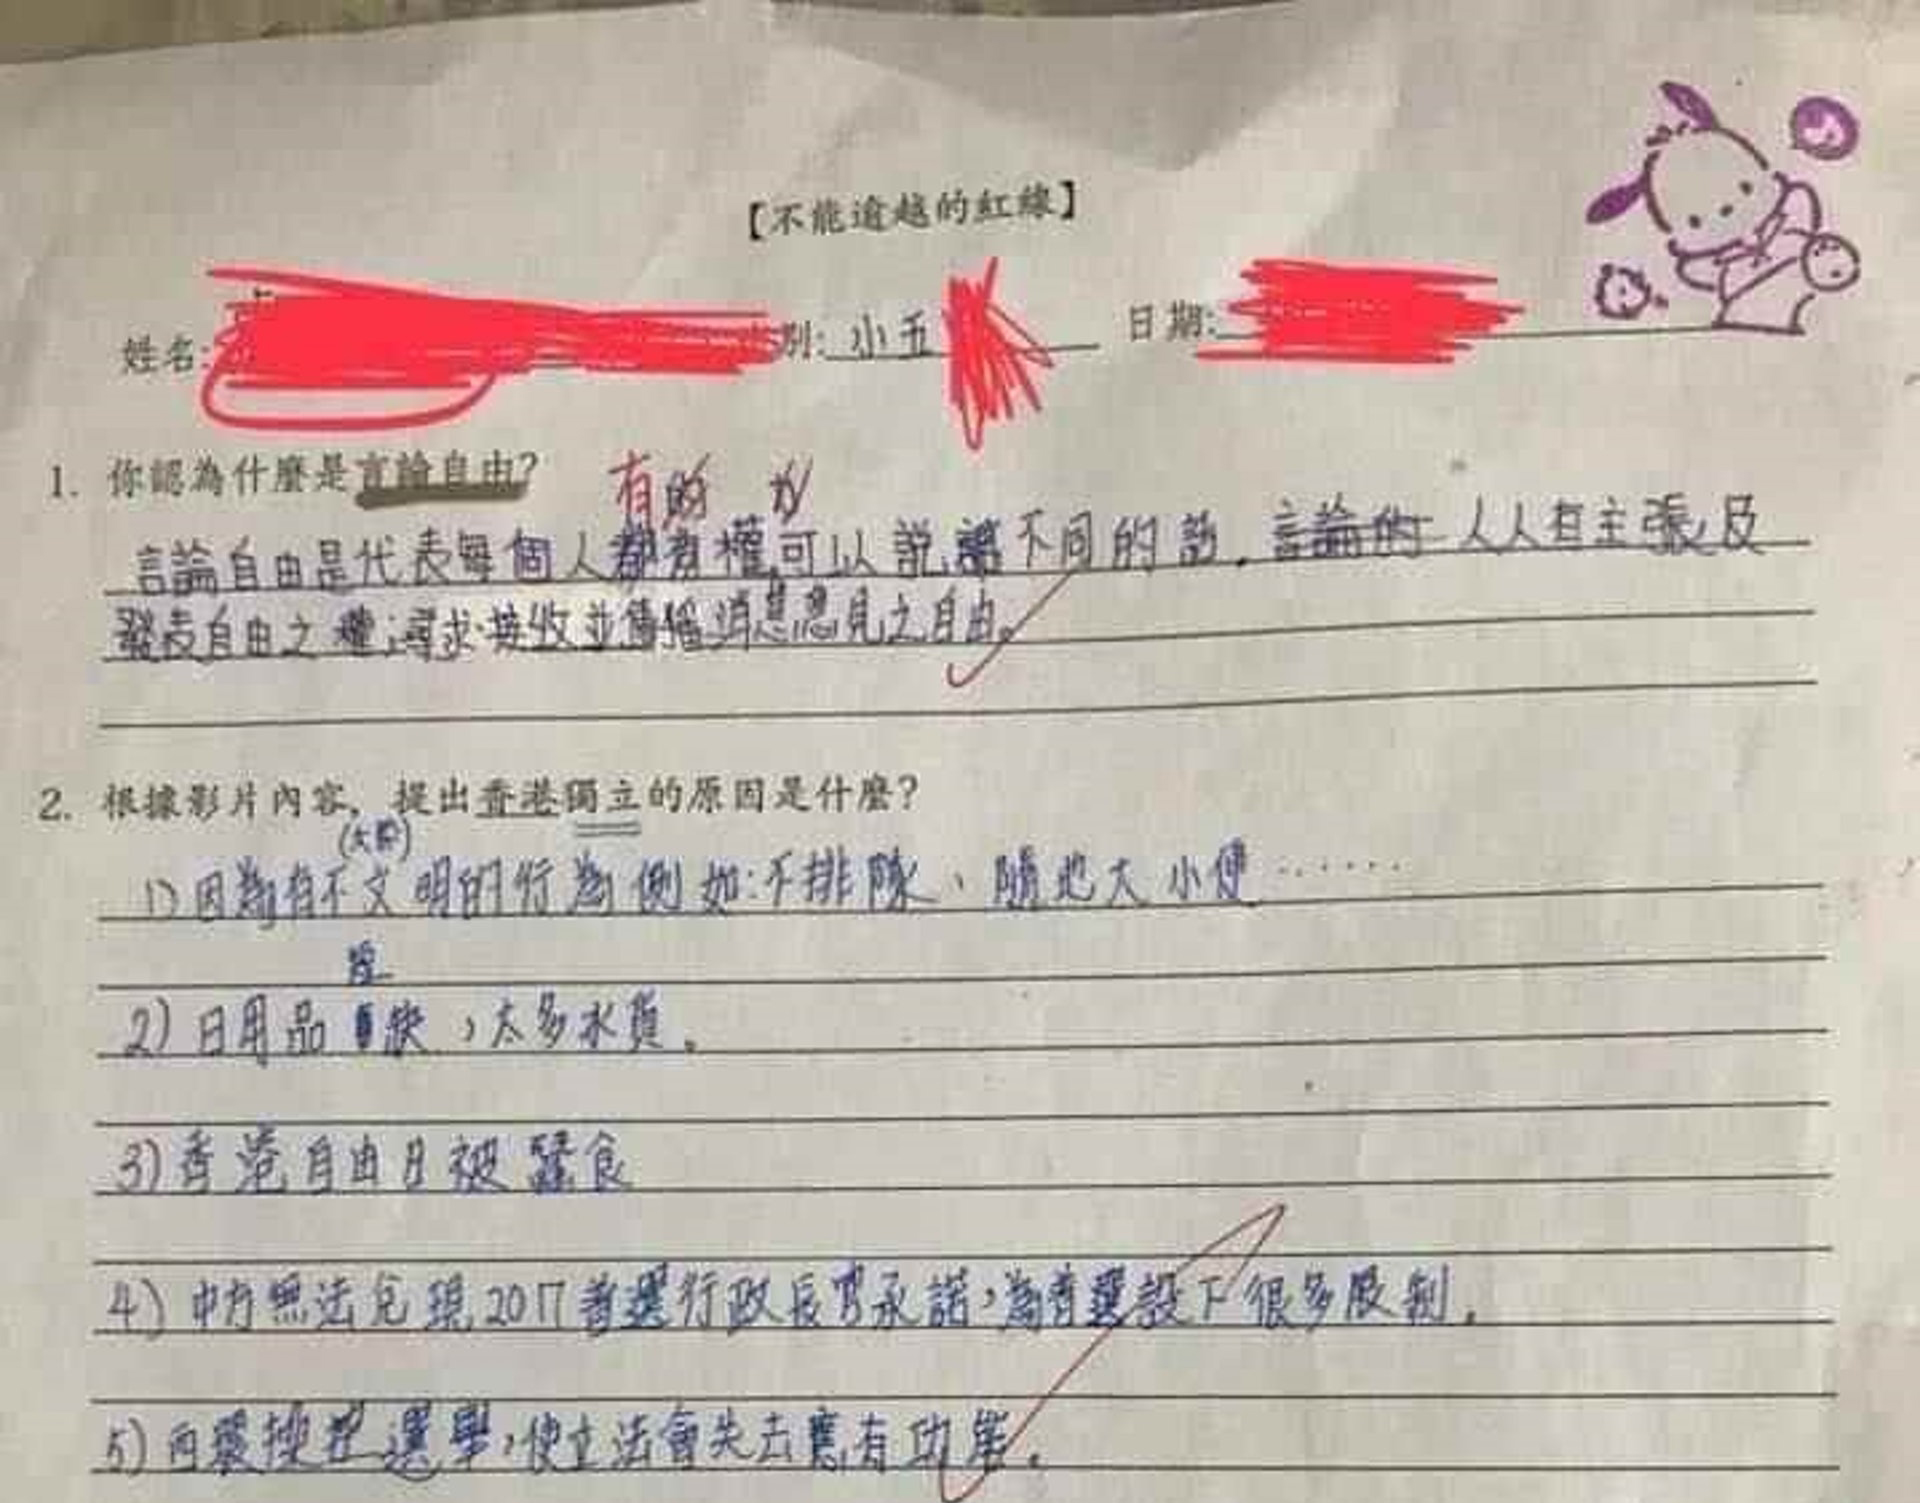 【不能逾越的紅線】
姓名: 別: 小五 日期:
1. 你認為什麼是言論自由?
有的 力
言論自由是代表每個人都有權可以說 不同的話. 言論的 人人有主張及
發表自由之權;尋求、接收並傳播消息意見之自由。
2. 根據影片內容, 提出香港獨立的原因是什麼?
(大陸)
1) 因為有不文明的行為 例如:不排隊、隨地大小便 ......
短
2) 日用品 缺,太多水貨.
3) 香港自由日被蠶食
4) 中方無法兌現2017普選行政長官承諾,為普選設下很多限制.
5) 內 操控選舉,使立法會失去應有功能.